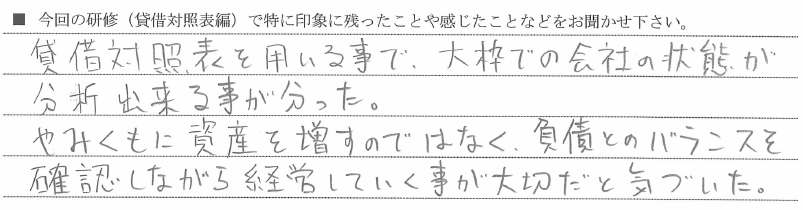 ■ 今回の研修（貸借対照表編）で特に印象に残ったことや感じたことなどをお聞かせ下さい。
貸借対照表を用いる事で、大枠での会社の状態が
分析出来る事が分った。
やみくもに資産を増すのではなく、負債とのバランスを
確認しながら経営していく事が大切だと気づいた。